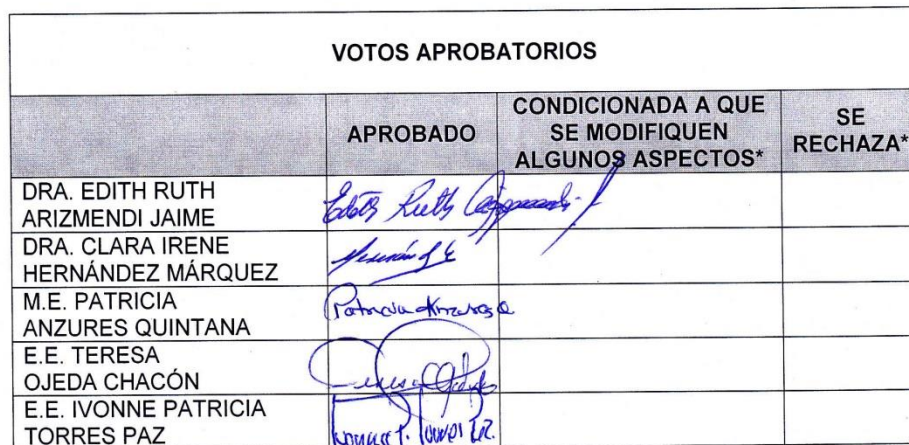 VOTOS APROBATORIOS
APROBADO
CONDICIONADA A QUE
SE MODIFIQUEN
ALGUNOS ASPECTOS*
SE
RECHAZA*
DRA. EDITH RUTH
ARIZMENDI JAIME
Edith Ruth
DRA. CLARA IRENE
HERNÁNDEZ MÁRQUEZ
M.E. PATRICIA
ANZURES QUINTANA
Patricia Anzures Q
E.E. TERESA
OJEDA CHACÓN
E.E. IVONNE PATRICIA
TORRES PAZ